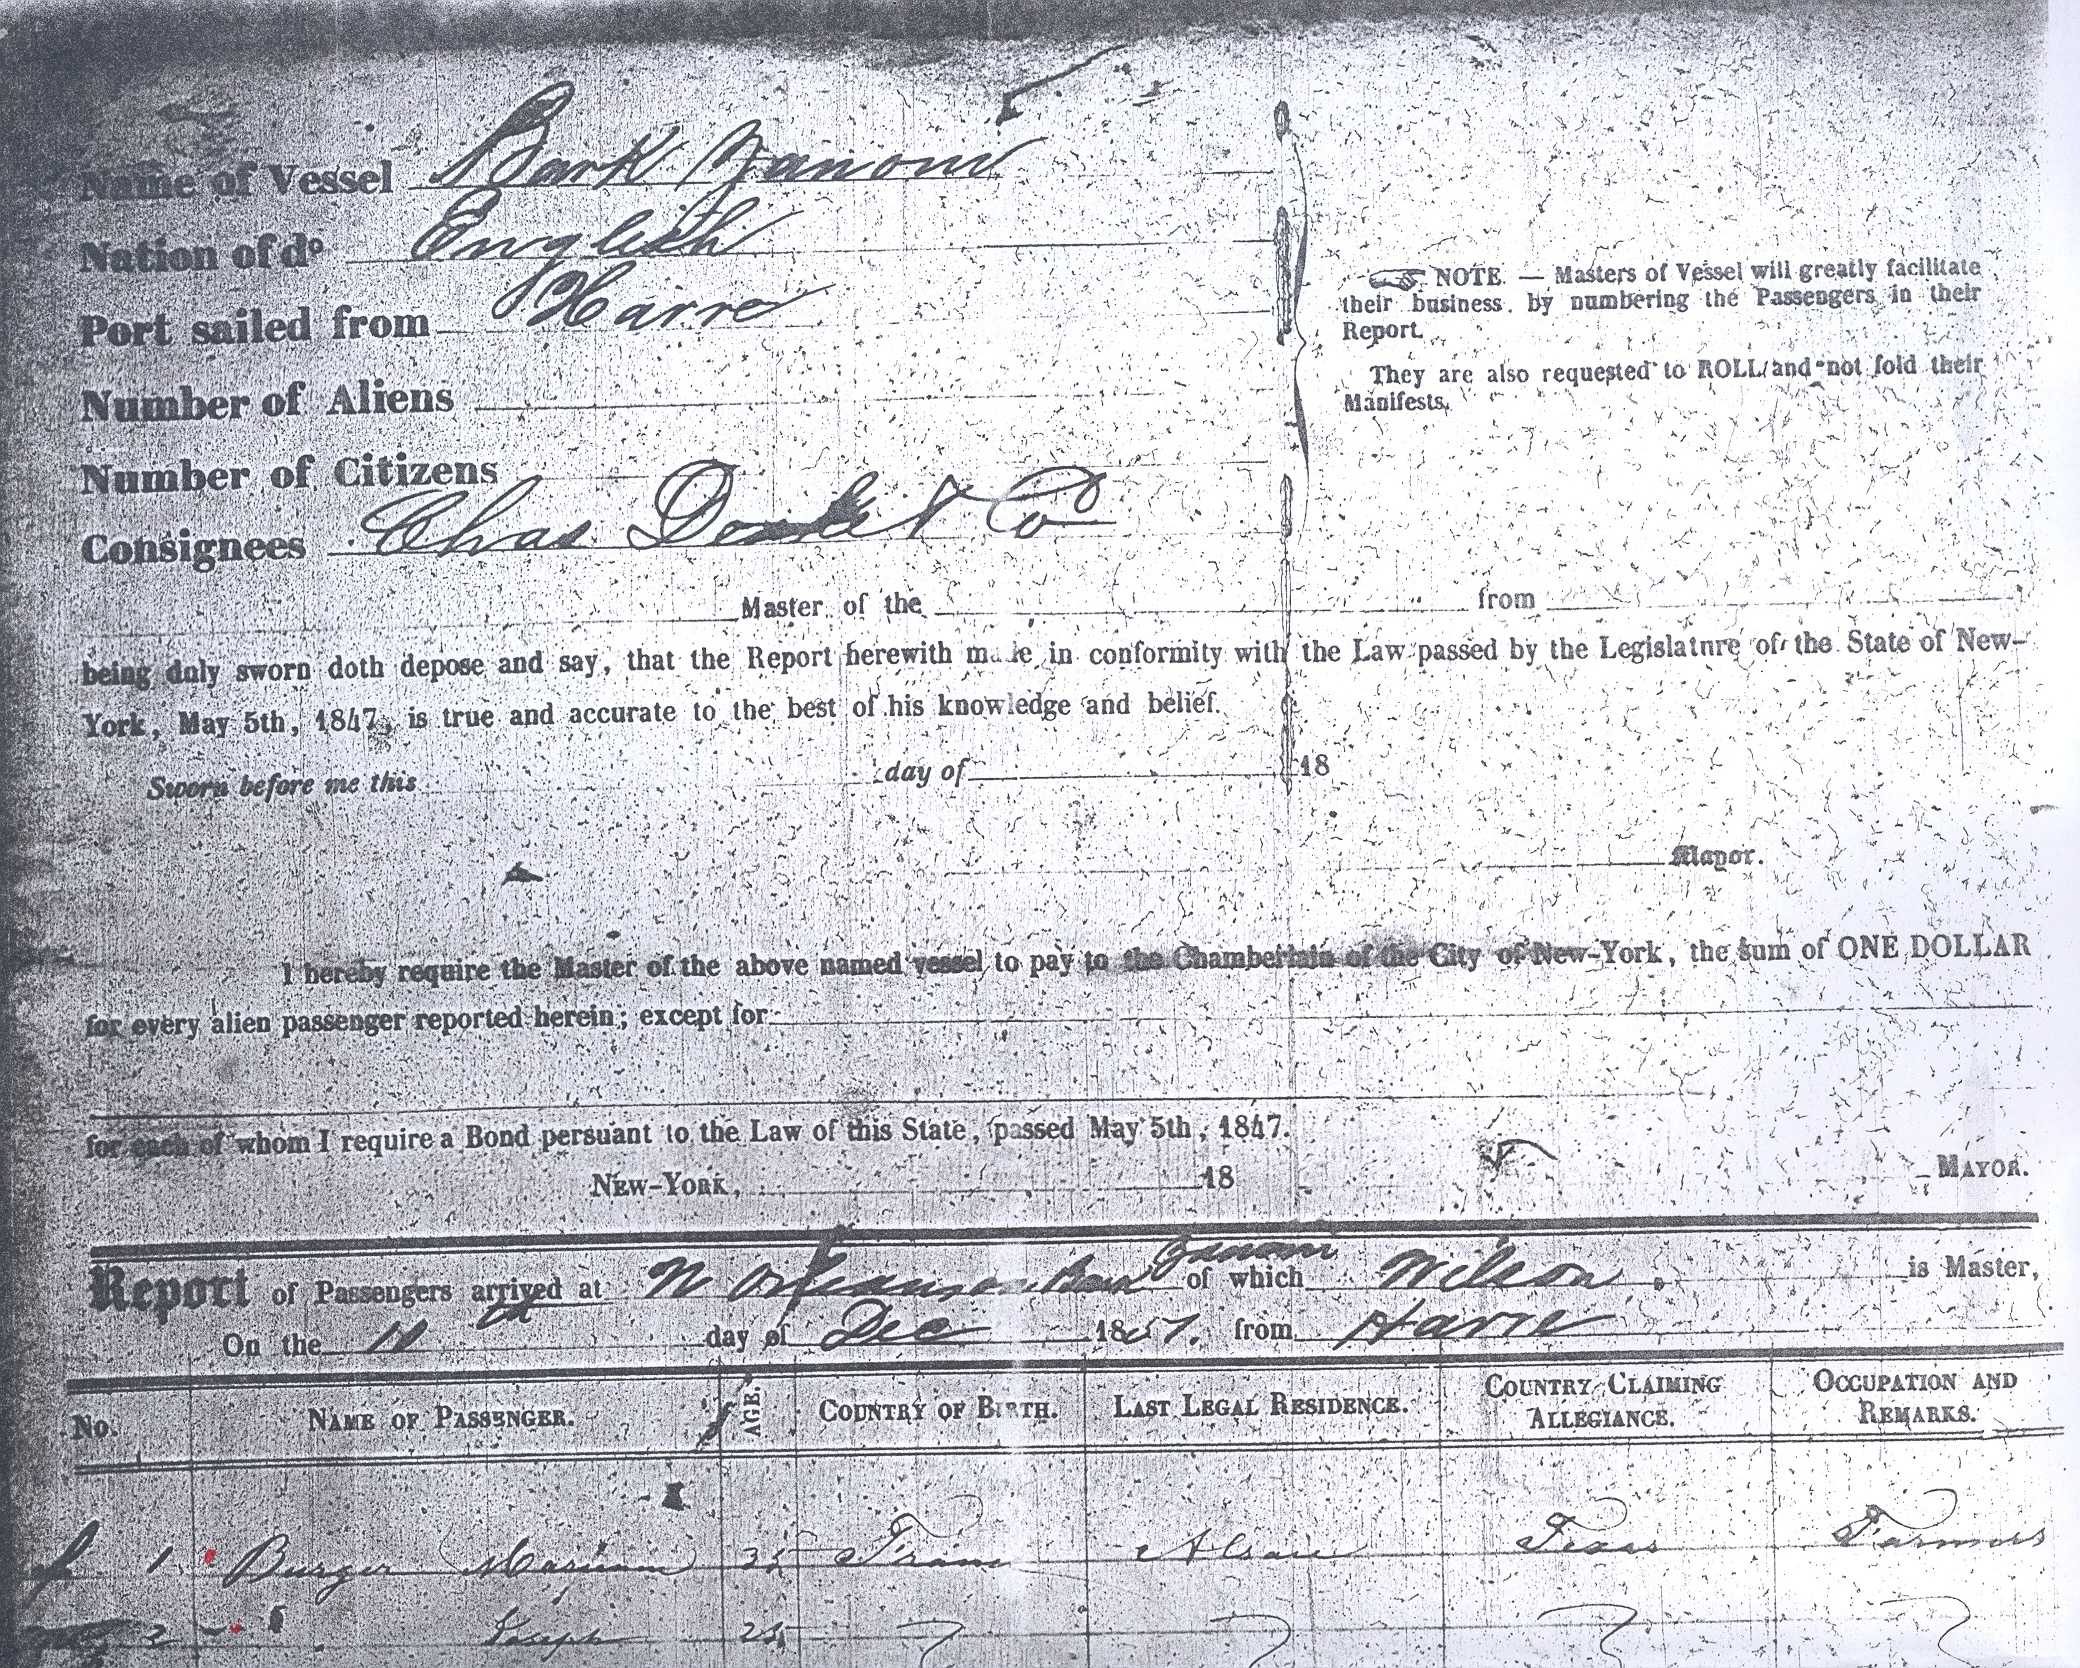 Name of Vessel Bark
Nation of do English
Port sailed from Havre
Number of Aliens
Number of Citizens
Consignees Chas & Co
☞ NOTE. — Masters of Vessel will greatly facilitate
their business, by numbering the Passengers in their
Report.
They are also requested to ROLL and not fold their
Manifests.
Master of the from
being duly sworn doth depose and say, that the Report herewith made in conformity with the Law passed by the Legislature of the State of New-
York, May 5th, 1847, is true and accurate to the best of his knowledge and belief.
Sworn before me this day of 18
Mayor.
I hereby require the Master of the above named vessel to pay to the Chamberlain of the City of New-York, the sum of ONE DOLLAR
for every alien passenger reported herein; except for
for each of whom I require a Bond persuant to the Law of this State, passed May 5th, 1847.
NEW-YORK, 18
MAYOR.
Report of Passengers arrived at N Orleans of which Wilson is Master,
On the day of Dec 18 from Havre
No. NAME OF PASSENGER. AGE. COUNTRY OF BIRTH. LAST LEGAL RESIDENCE. COUNTRY CLAIMING ALLEGIANCE. OCCUPATION AND REMARKS.
1 Burger Franc Alsace Texas Farmers
2 Joseph